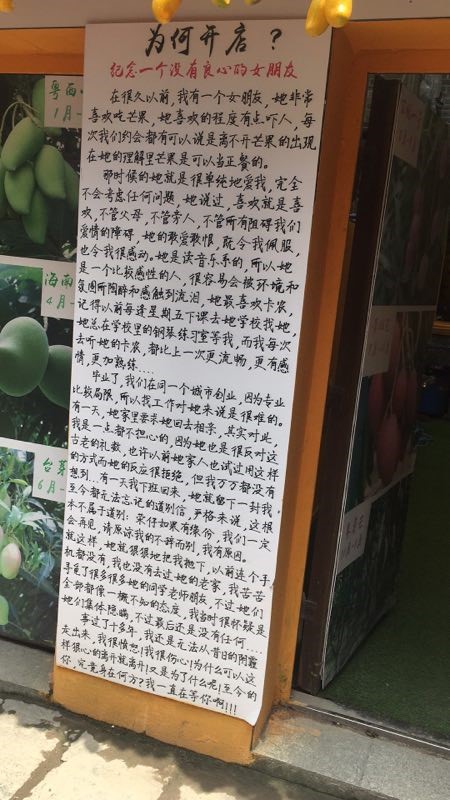 为何开店？
纪念一个没有良心的女朋友
在很久以前，我有一个女朋友，她非常
喜欢吃芒果，她喜欢的程度有点吓人，每
次我们约会都有可以说是离不开芒果的出现
在她的理解里芒果是可以当正餐的。
那时候的她就是很单纯地爱我，完全
不会考虑任何问题，她说过，喜欢就是喜
欢，不管父母，不管旁人，不管所有阻碍我们
爱情的障碍，她的敢爱敢恨，既令我佩服，
也令我很感动。她是读音乐系的，所以她
是一个比较感性的人，很容易会被环境和
氛围所陶醉和感触到流泪，她最喜欢卡农，
记得以前每逢星期五下课去她学校找她，
她总在学校里的钢琴练习室等我，而我每次
去听她的卡农，都比上一次更流畅，更有感
情，更加熟练....
毕业了，我们在同一个城市创业，因为专业
比较局限，所以找工作对她来说是很难的。
有一天，她家里要来她回去相亲，其实对此，
我是一点都不担心的，因为她也是很反对这
古老的礼数，也许以前她家人也试过用这样
的方式而她的反应很拒绝，但我万万都没有
想到...有一天我下班回来，她就留下一封我
至今都无法忘记的道别信，严格来说，这根
本不属于道别：宋仔如果有缘份，我们一定
会再见，请原谅我的不辞而别，我有原因。
就这样，她就狠狠地把我抛下，以前连个手
机都没有，我也没有去过她的老家，我苦苦
寻觅了很多很多她的同学老师朋友，不过她们
全部都像一概不知的态度，我当时很怀疑是
她们集体隐瞒，不过最后还是没有任何....
事过了十多年，我还是无法从昔日的阴霾
走出来，我很愤怒！我很伤心！为什么可以这
样狠心的离开就离开！又是为了什么呢！至今的
你，究竟身在何方？我一直在等你啊！！！
粤西
1月-
海南
4月-
台芽
6月-